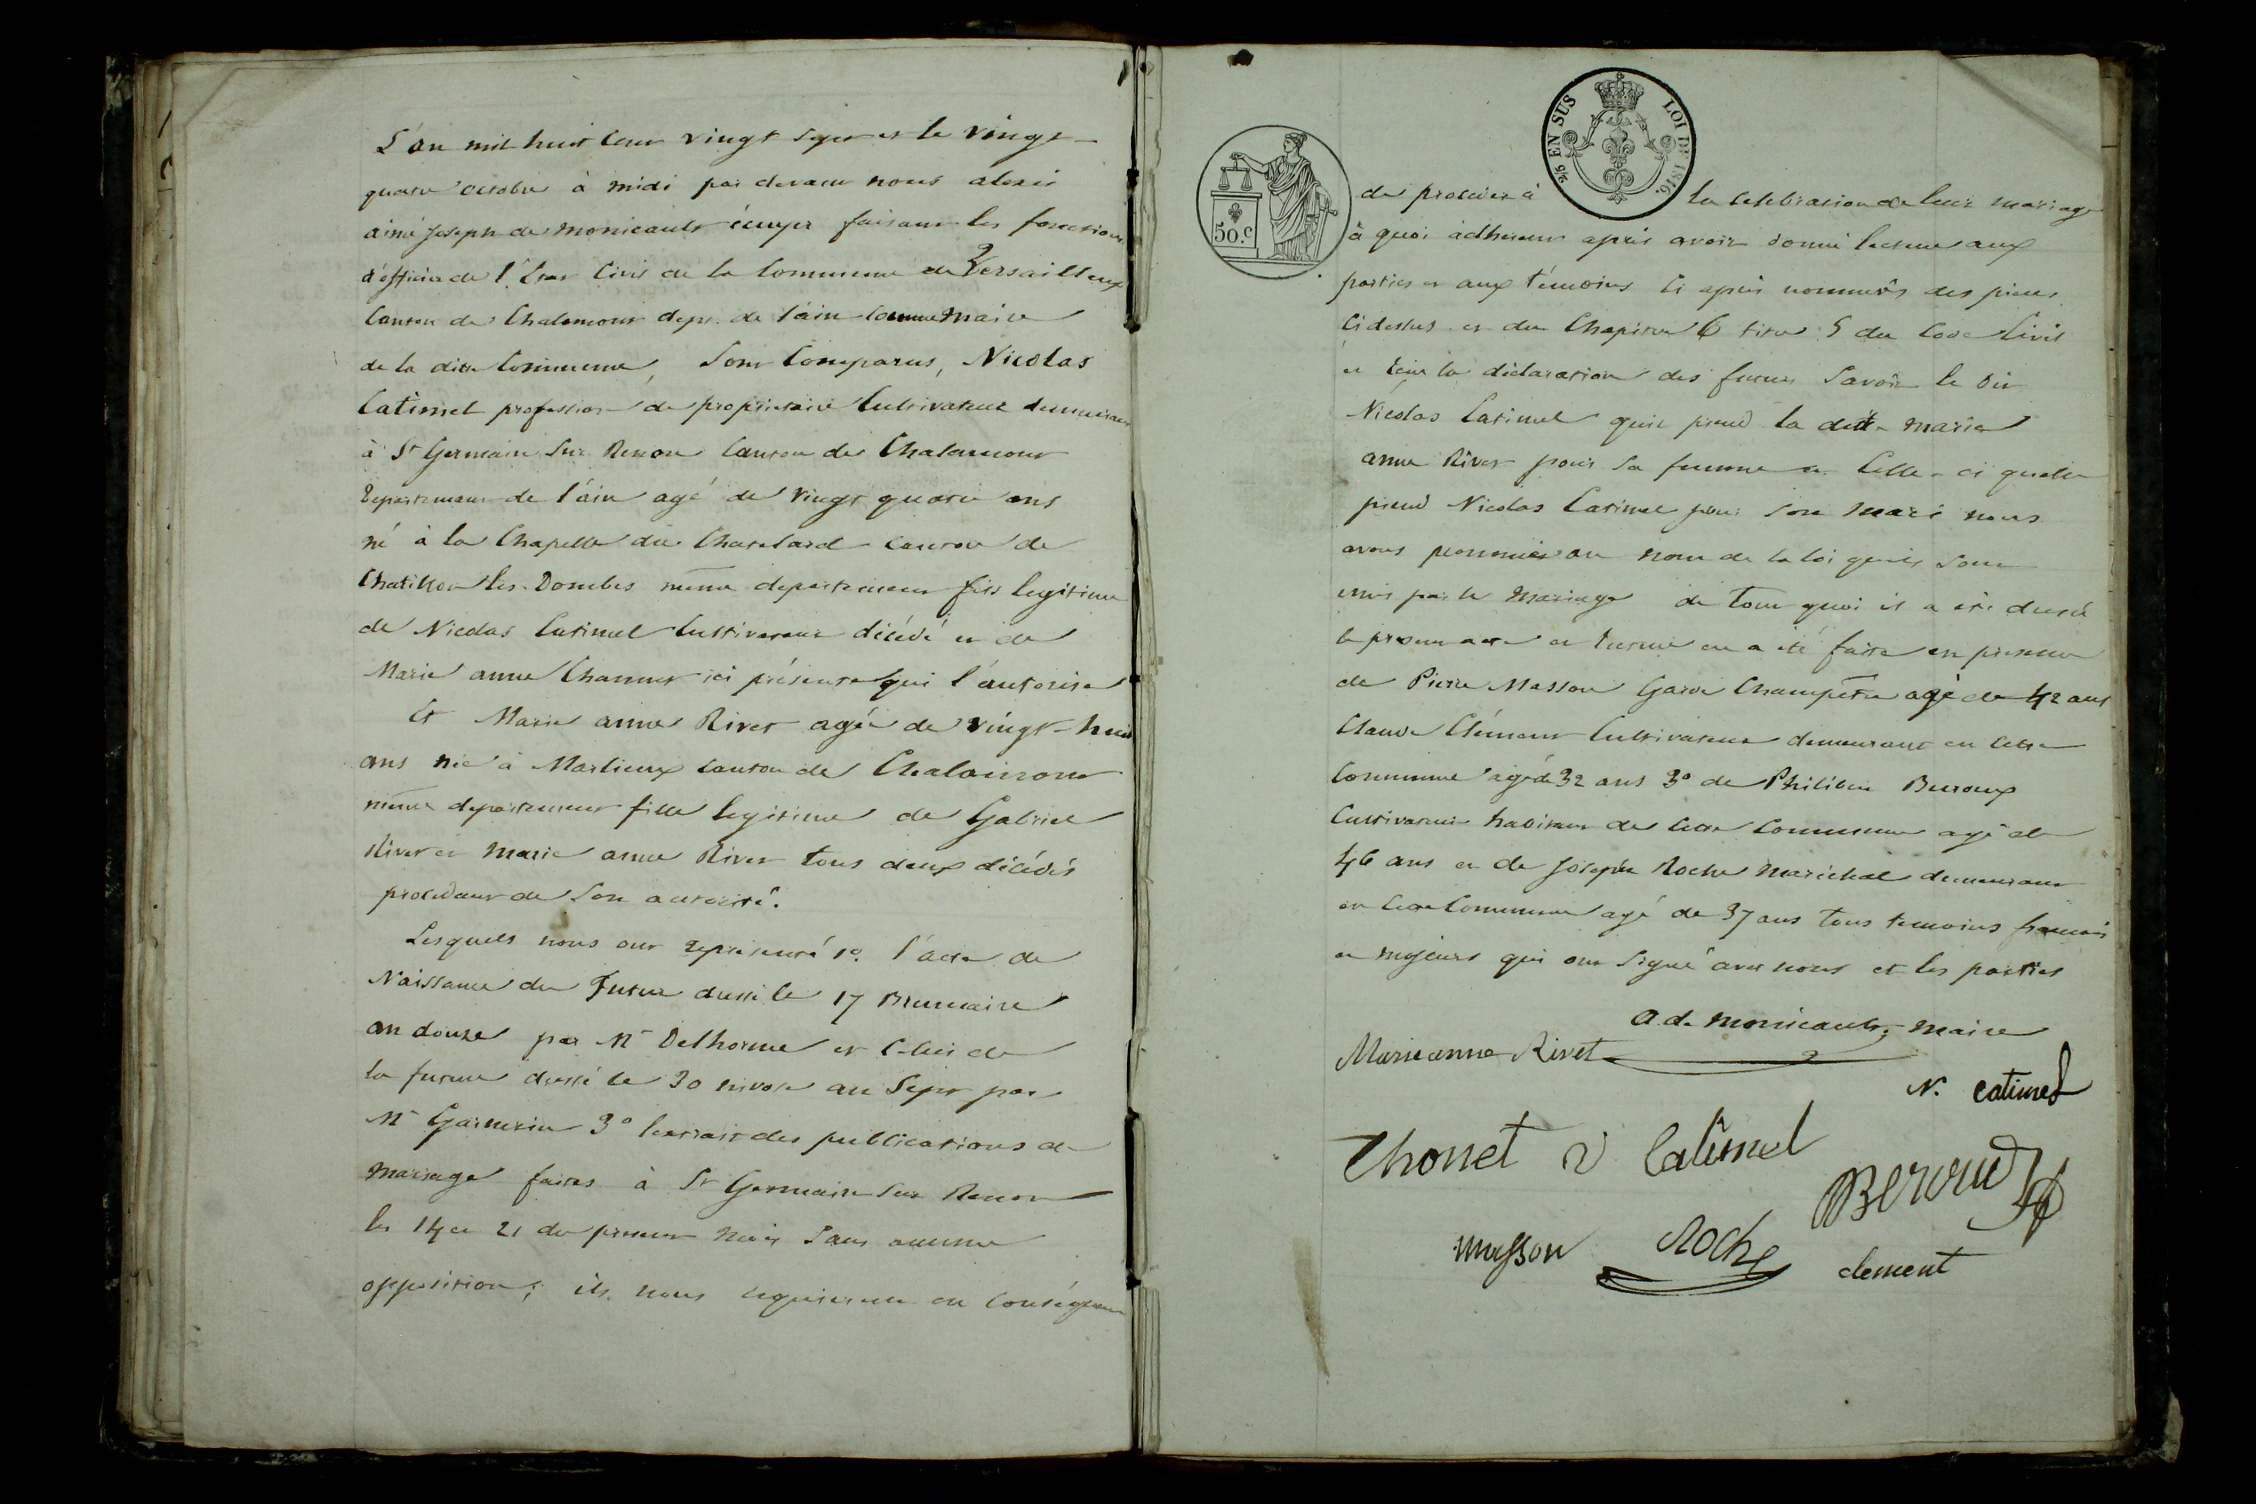 L'an mil huit cent vingt sept et le vingt-
quatre octobre à midi par devant nous alexis
aimé Joseph de monicault écuyer faisant les fonctions
d'officier de l'état Civil de la Commune de Versailleux
Canton de Chalamont dépt. de l'ain comme Maire
de la dite Commune, Sont Comparus, Nicolas
Catimel profession de propriétaire Cultivateur demeurant
à St Germain Sur Renon Canton de Chalamont
Département de l'ain agé de vingt quatre ans
né à la Chapelle du Chatelard canton de
Chatillon les-Dombes même departement fils legitime
de Nicolas Catimel Cultivateur décédé et de
Marie anne Chonnet ici présente qui l'autorise
Et Marie anne Rivet agée de vingt-huit
ans née à Marlieux canton de Chalamont
même departement fille legitime de Gabriel
Rivet et Marie anne Rivet tous deux décédés
procédant de Son autorité.
Lesquels nous ont représenté 1º. l'acte de
Naissance du Futur dressé le 17 Brumaire
an douze par Mr Delhorme et Celui de
la future dressé le 30 nivose an Sept par
Mr Garnerin 3º lextrait des publications de
mariage faites à St Germain Sur Renon
les 14 et 21 du present mois Sans aucune
opposition; ils nous requierent en Conséquence
50.C
25 EN SUS LOI DE 1816.
de proceder à la celebration de leur mariage
à quoi adherant après avoir donné lecture aux
parties et aux témoins ci après nommés des pieces
Ci dessus et du Chapitre 6 titre 5 du Code Civil
et reçu la déclaration des futurs Savoir le dit
Nicolas Catimel qu'il prend la dite Marie
anne Rivet pour Sa femme et Celle-ci quelle
prend Nicolas Catimel pour Son Mari nous
avons prononcé au nom de la loi qu'ils Sont
unis par le Mariage de tout quoi il a été dressé
le present acte et lecture en a été faite en presence
de Pierre Masson Garde Champêtre agé de 42 ans
Claude Clément Cultivateur demeurant en cette
Commune agé de 32 ans 3º de Philibert Beroux
Cultivateur habitant de Cette Commune agé de
46 ans et de Joseph Roche Maréchal demeurant
en Cette Commune agé de 37 ans tous temoins francais
et majeurs qui ont Signé avec nous et les parties
a. de monicault, maire
Marie anne Rivet
N. catimel
Chonet v Catimel
Beroud
masson Roche clement